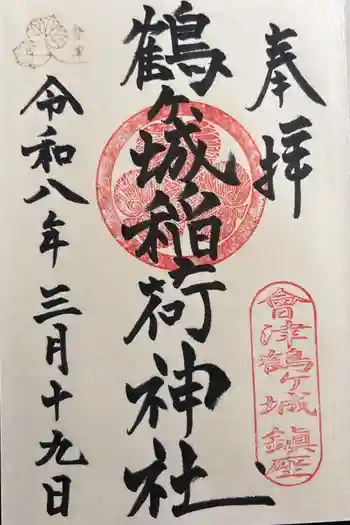 奉拝
會津鶴ヶ城鎮座
鶴ヶ城稲荷神社
令和八年三月十九日